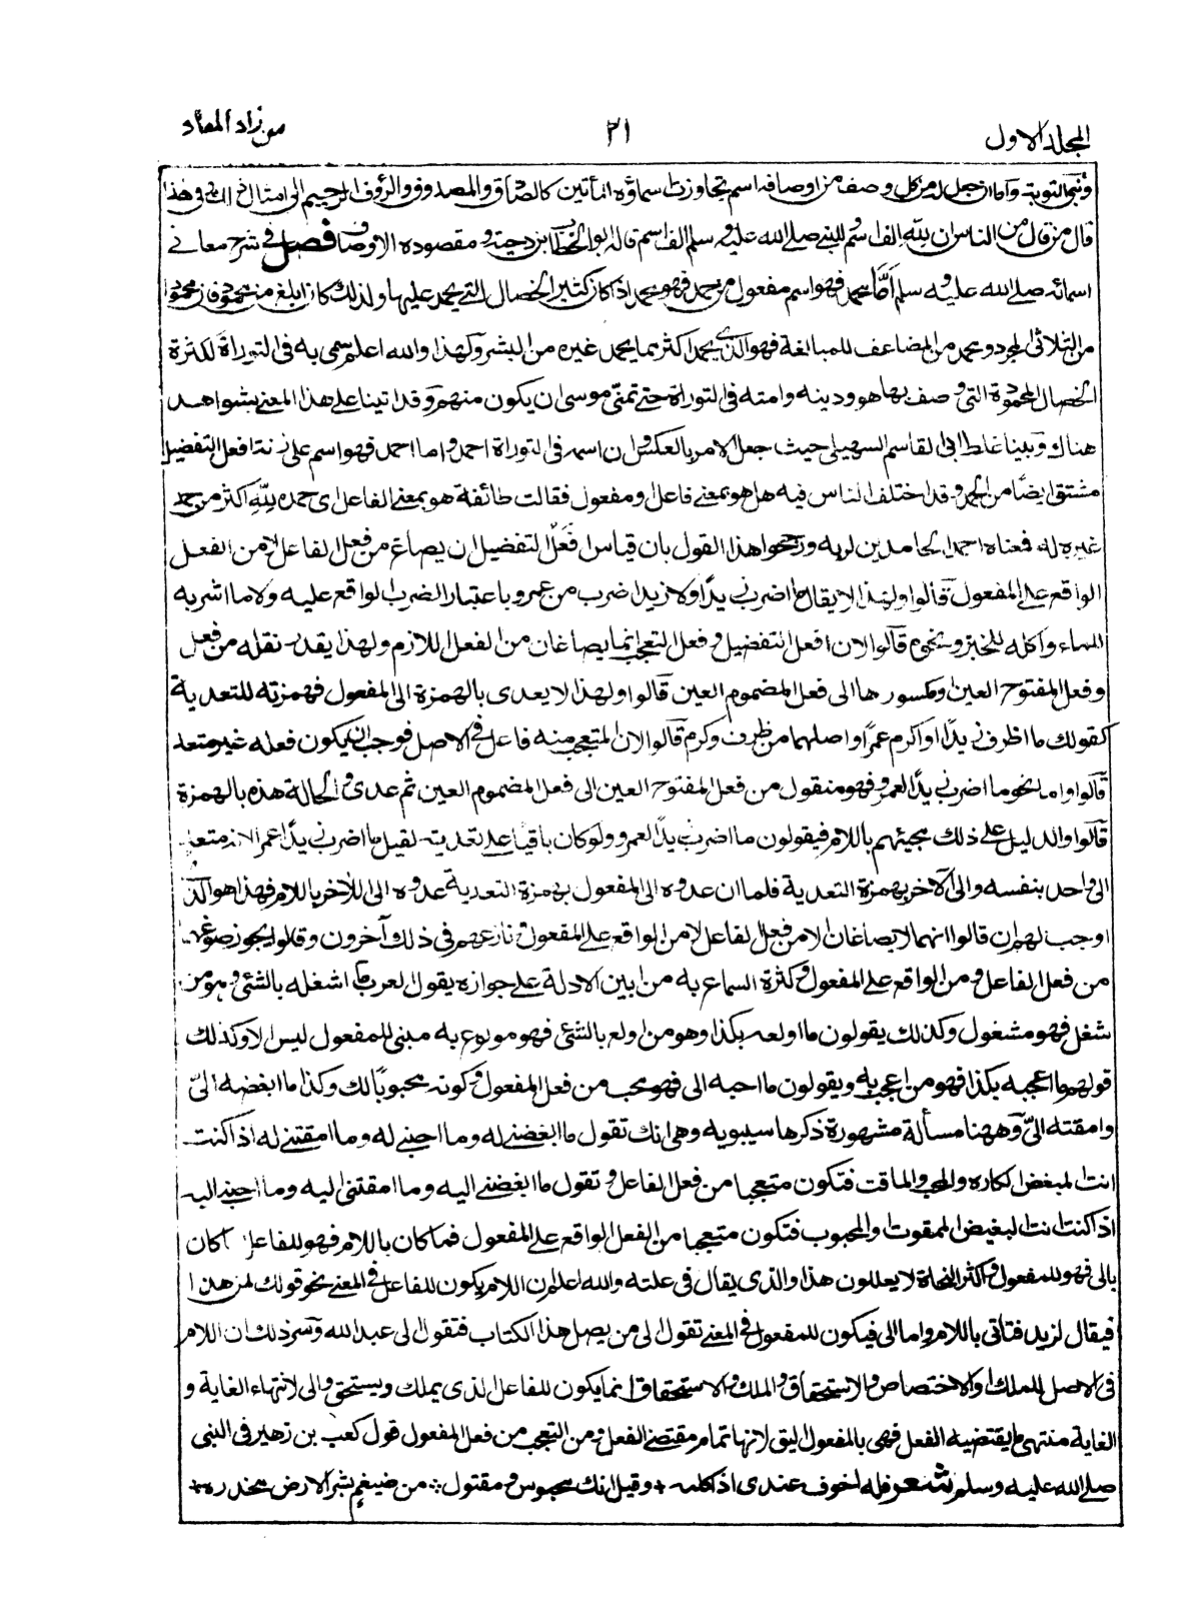 المجلد الاول
٢١
من زاد المعاد
ونبى التوبة وآما ان جعل له من كل وصف من اوصافه اسم تجاوزت اسماؤه المأتين كالصادق والمصدوق والرؤف الرحيم الى امثال ذلك وفى هذا
قال من قال من الناس ان لله الف اسم وللنبى صلى الله عليه وسلم الف اسم قاله ابو الخطاب بن دحية ومقصوده الاوصاف فصل فى شرح معانى
اسمائه صلى الله عليه وسلم اما محمد فهو اسم مفعول من حمد فهو محمد اذا كان كثير الخصال التى يحمد عليها ولذلك كان ابلغ من محمود فان محمودا
من الثلاثى المجرد ومحمد من المضاعف للمبالغة فهو الذى يحمد اكثر مما يحمد غيره من البشر ولهذا والله اعلم سمى به فى التوراة لكثرة
الخصال المحمودة التى وصف بها هو ودينه وامته فى التوراة حتى تمنى موسى ان يكون منهم وقد اتينا على هذا المعنى بشواهد
هناك وبينا غلط ابى القاسم السهيلى حيث جعل الامر بالعكس وان اسمه فى التوراة احمد واما احمد فهو اسم على زنة افعل التفضيل
مشتق ايضا من الحمد وقد اختلف الناس فيه هل هو بمعنى فاعل او مفعول فقالت طائفة هو بمعنى الفاعل اى حمده لله اكثر من حمد
غيره له فمعناه احمد الحامدين لربه ورجحوا هذا القول بان قياس افعل التفضيل ان يصاغ من فعل الفاعل لا من الفعل
الواقع على المفعول قالوا ولهذا لا يقال ما اضرب زيدا ولا زيد اضرب من عمرو باعتبار الضرب الواقع عليه ولا ما اشربه
للماء وآكله للخبز ونحوه قالوا لان افعل التفضيل وفعل التعجب انما يصاغان من الفعل اللازم ولهذا يقدر نقله من فعل
وفعل المفتوح العين ومكسورها الى فعل المضموم العين قالوا ولهذا لا يعدى بالهمزة الى المفعول فهمزته للتعدية
كقولك ما اظرف زيدا واكرم عمرا واصلهما من ظرف وكرم قالوا لان المتعجب منه فاعل فى الاصل فوجب ان يكون فعله غير متعد
قالوا واما نحو ما اضرب زيدا لعمرو فهو منقول من فعل المفتوح العين الى فعل المضموم العين ثم عدى والحالة هذه بالهمزة
قالوا والدليل على ذلك مجيئهم باللام فيقولون ما اضرب زيدا لعمرو ولو كان باقيا على تعديته لقيل ما اضرب زيدا عمرا لانه متعد
الى واحد بنفسه والى الآخر بهمزة التعدية فلما ان عدوه الى المفعول بهمزة التعدية عدوه الى الآخر باللام فهذا هو الذى
اوجب لهم ان قالوا انهما لا يصاغان الا من فعل الفاعل لا من الواقع على المفعول ونازعهم فى ذلك آخرون وقالوا يجوز صوغهما
من فعل الفاعل ومن الواقع على المفعول وكثرة السماع به من ابين الادلة على جوازه يقول العرب ما اشغله بالشئ وهو من
شغل فهو مشغول وكذلك يقولون ما اولعه بكذا وهو من اولع بالشئ فهو مولوع به مبنى للمفعول ليس الا وكذلك
قولهم ما اعجبه بكذا فهو من اعجب به ويقولون ما احبه الى فهو تعجب من فعل المفعول وكونه محبوبا لك وكذا ما ابغضه الىّ
وامقته الىّ وههنا مسألة مشهورة ذكرها سيبويه وهى انك تقول ما ابغضنى له وما احبنى له وما امقتنى له اذا كنت
انت المبغض الكاره والمحب والماقت فتكون متعجبا من فعل الفاعل وتقول ما ابغضنى اليه وما امقتنى اليه وما احبنى اليه
اذا كنت انت البغيض الممقوت والمحبوب فتكون متعجبا من الفعل الواقع على المفعول فما كان باللام فهو للفاعل وما كان
بالى فهو للمفعول واكثر النحاة لا يعللون هذا والذى يقال فى علته والله اعلم ان اللام يكون للفاعل فى المعنى نحو قولك لمن هذا
فيقال لزيد فتاتى باللام واما الى فيكون للمفعول فى المعنى تقول الى من يصل هذا الكتاب فتقول الى عبد الله وسر ذلك ان اللام
فى الاصل للملك او الاختصاص والاستحقاق والملك والاستحقاق انما يكون للفاعل الذى يملك ويستحق والى لانتهاء الغاية و
الغاية منتهى ما يقتضيه الفعل فهى بالمفعول اليق لانها تمام مقتضى الفعل ومن التعجب من فعل المفعول قول كعب بن زهير فى النبى
صلى الله عليه وسلم شعر فله اخوف عندى اذ اكلمه + وقيل انك محبوس ومقتول ÷ من ضيغم بثرى الارض مخدره +